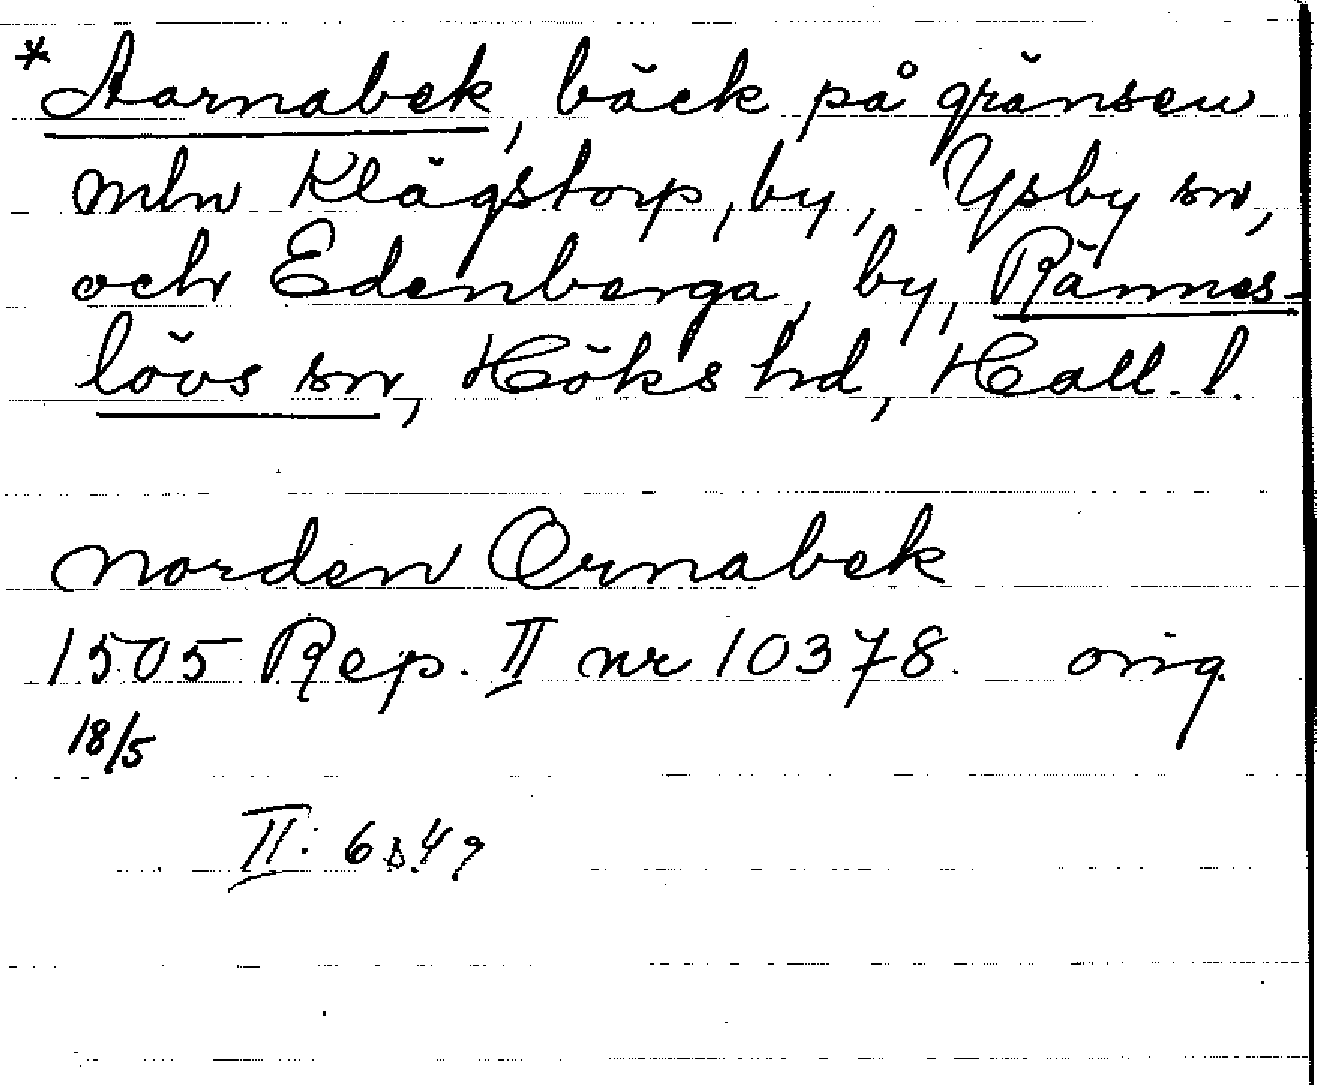 * Aarnabek, bäck på gränsen
mln Klägstorp, by, Ysby sn,
och Edenberga, by, Rännes-
lövs sn, Höks hd, Hall. l.
norden Ørnabek
1505 Rep. II nr 10378. orig.
18/5
II: 6 s. 49